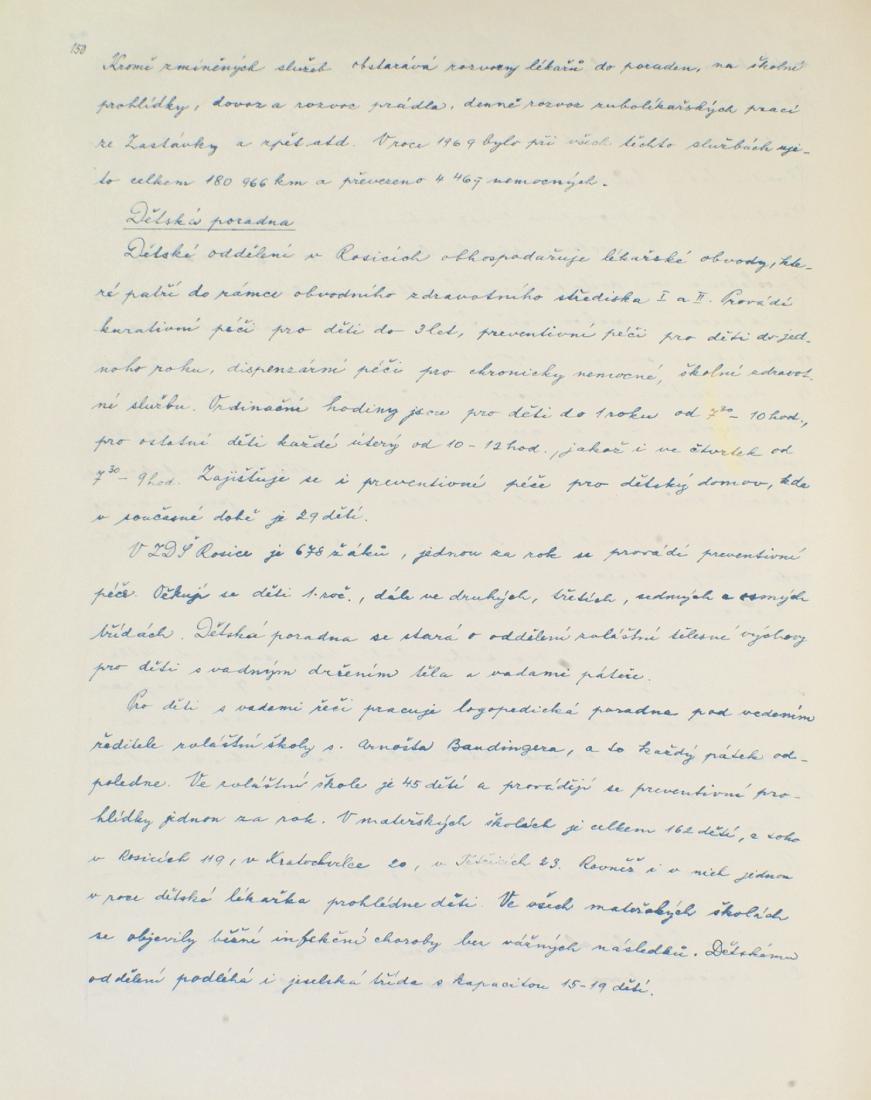 150
Kromě zmíněných služeb obstarává rozvozy lékařů do poraden, na školní
prohlídky, dovoz a rozvoz prádla, denně rozvoz zubolékařských prací
ze Zastávky a zpět atd. V roce 1969 bylo při všech těchto službách uje-
to celkem 180 966 km a převezeno 4 467 nemocných.
Dětská poradna
Dětské oddělení v Rosicích obhospodařuje lékařské obvody, kte-
ré patří do rámce obvodního zdravotního střediska I a II. Provádí
kurativní péči pro děti do 3 let, preventivní péči pro děti do jed-
noho roku, dispenzární péči pro chronicky nemocné, školní zdravot-
ní službu. Ordinační hodiny jsou pro děti do 1 roku od 7³⁰ – 10 hod.,
pro ostatní děti každé úterý od 10 – 12 hod., jakož i ve čtvrtek od
7³⁰ – 9 hod. Zajišťuje se i preventivné péče pro dětský domov, kde
v současné době je 29 dětí.
V ZDŠ Rosice je 678 žáků, jednou za rok se provádí preventivní
péče. Očkují se děti 1. roč., dále ve druhých, třetích, sedmých a osmých
třídách. Dětská poradna se stará o oddělení zvláštní tělesné výchovy
pro děti s vadným držením těla a vadami páteře.
Pro děti s vadami řeči pracuje logopedická poradna pod vedením
ředitele zvláštní školy s. Arnošta Baudingera, a to každý pátek od-
poledne. Ve zvláštní škole je 45 dětí a provádějí se preventivní pro-
hlídky jednou za rok. V mateřských školách je celkem 162 dětí, z toho
v Rosicích 119, v Kratochvilce 20, v Tetčicích 23. Rovněž i v nich jednou
v roce dětská lékařka prohlédne děti. Ve všech mateřských školách
se objevily běžné infekční choroby bez vážných následků. Dětskému
oddělení podléhá i jeselská třída s kapacitou 15-19 dětí.